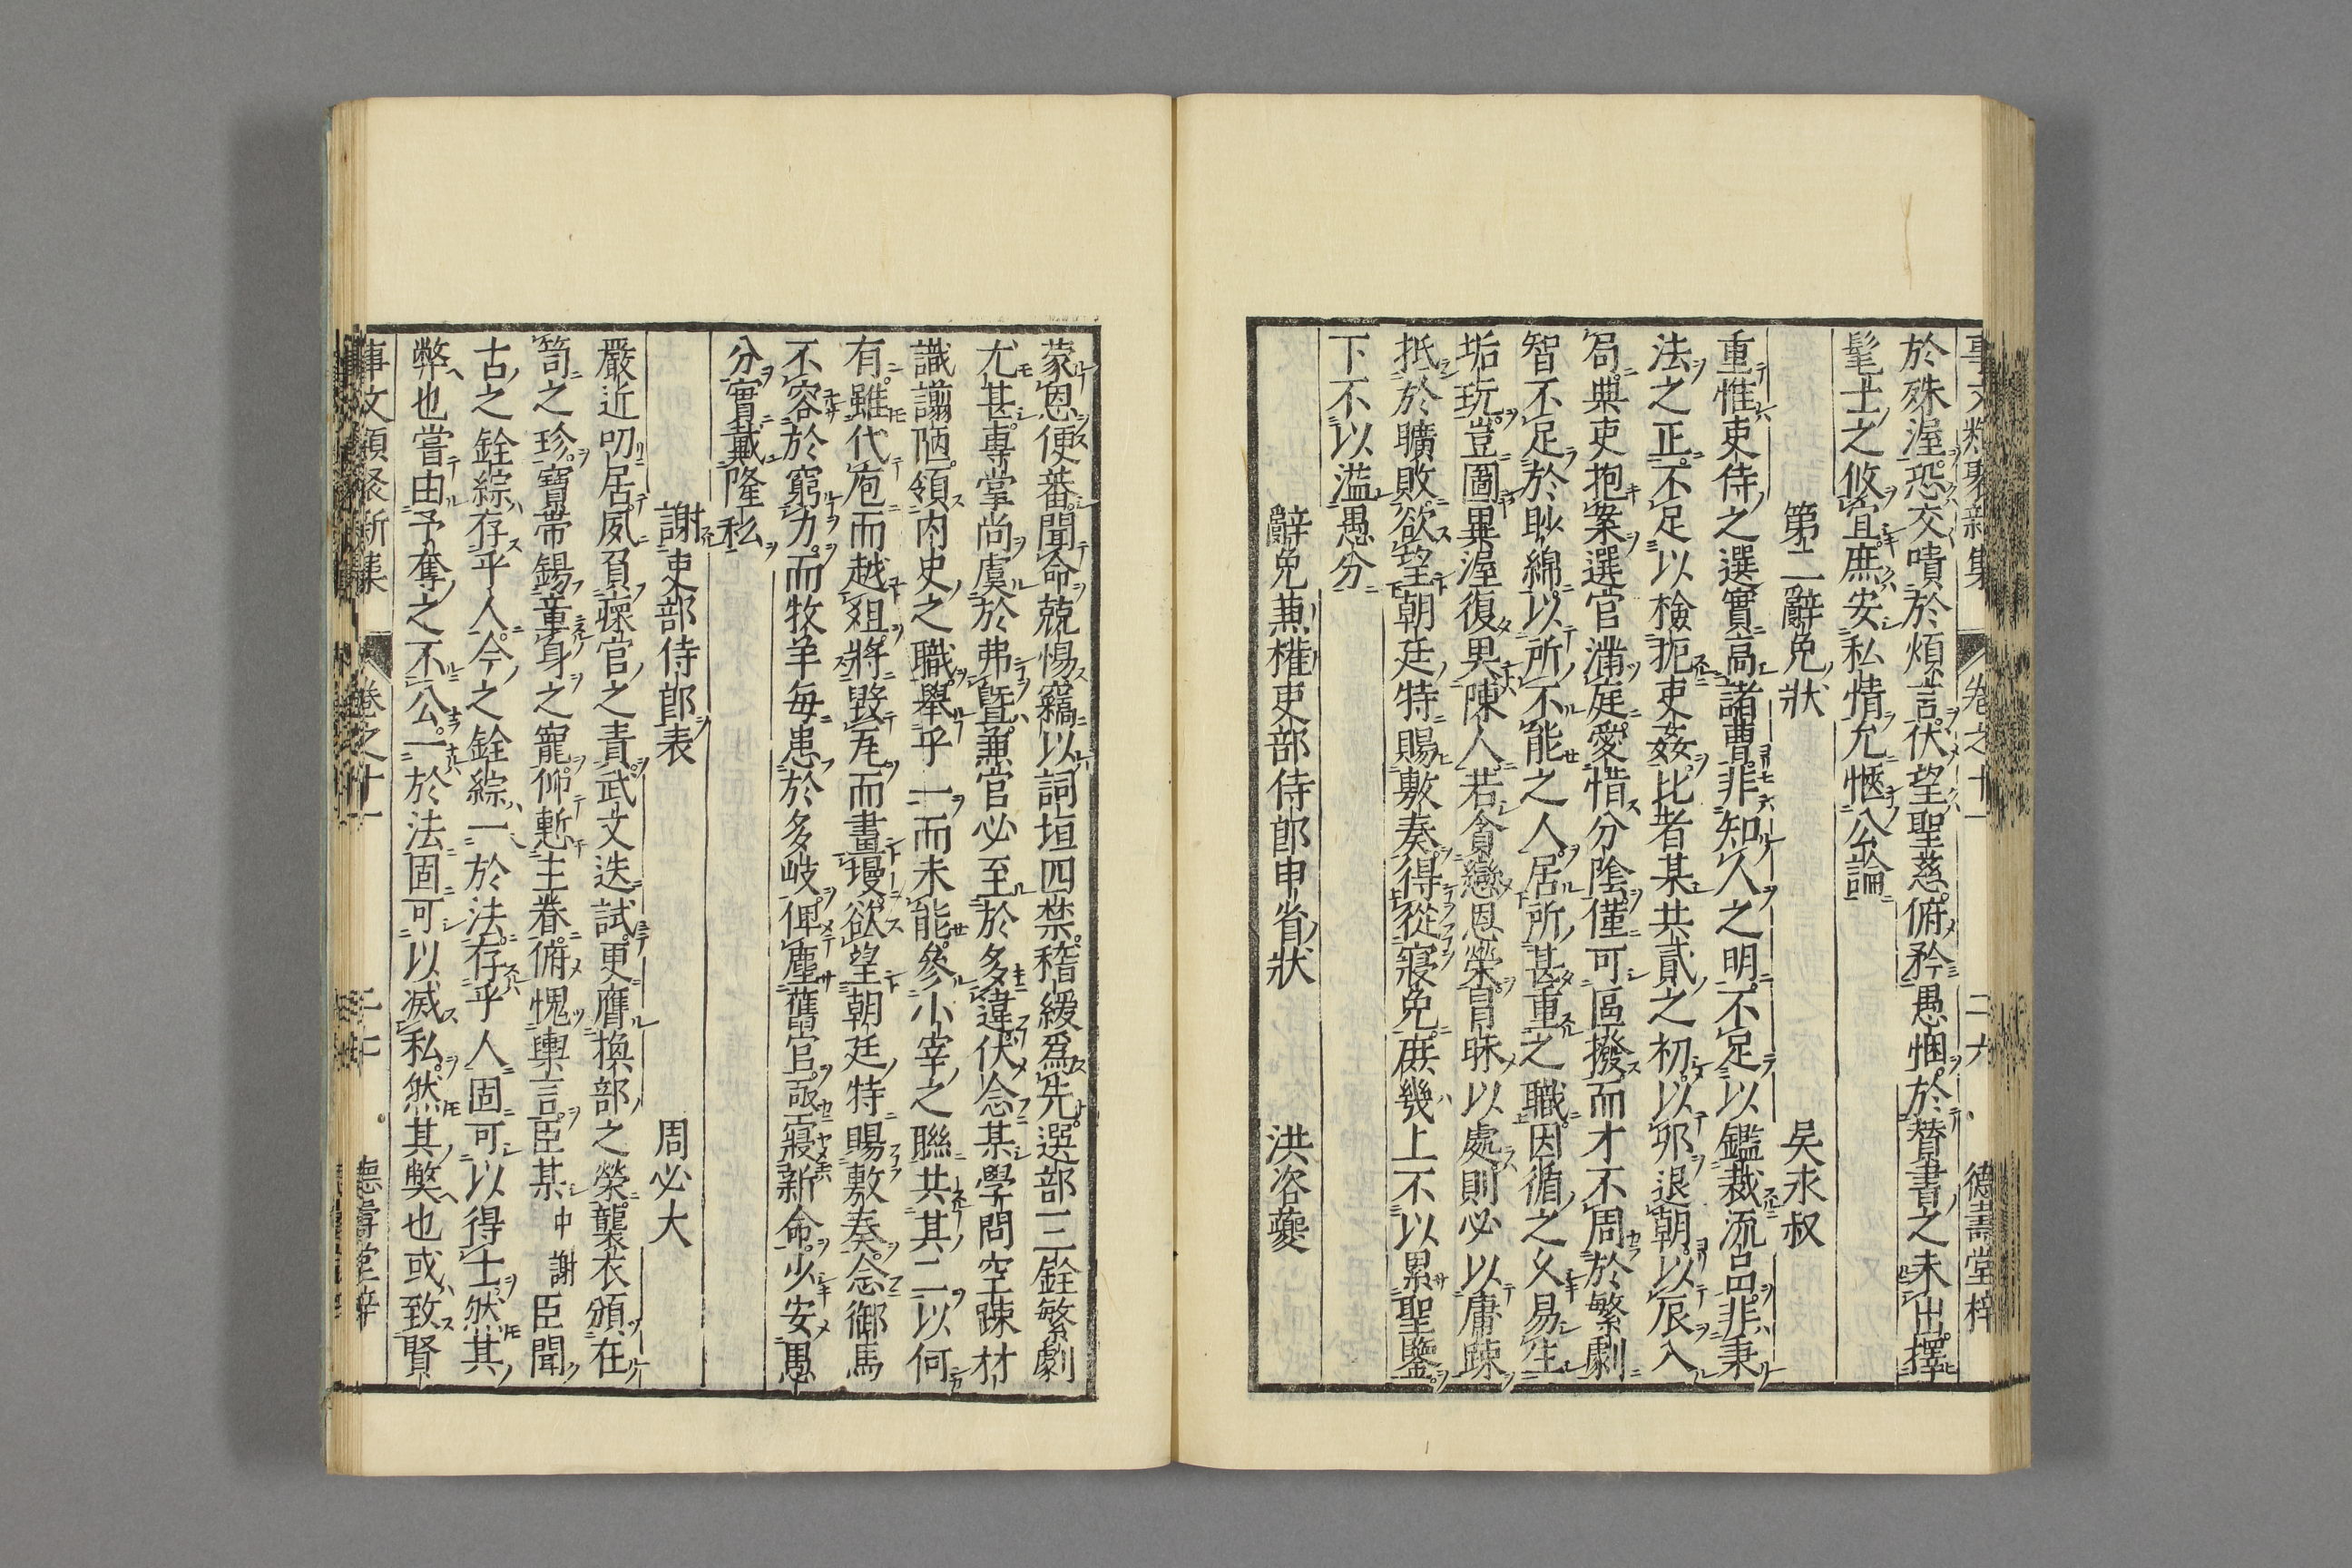 事文類聚新集 卷之十一 二十六 德壽堂梓
於殊渥恐交嘖於煩言伏望聖慈俯矜愚悃於替書之未出擇
髦士之攸宜庶安私情允惬公論
第二辭免狀 吳永叔
重惟吏侍之選實高諸曹非知人之明不足以鑑裁流品非秉
法之正不足以檢扼吏姦比者某共貳之初以夘退朝以辰入
局典吏抱案選官滿庭愛惜分陰僅可區撥而才不周於繁劇
智不足於眇綿以所不能之人居所甚重之職因循之久易生
垢玩豈圖異渥復畀陳人若貪戀恩榮冐昧以處則必以庸踈
抵於曠敗欲望朝廷特賜敷奏得從寢免庶幾上不以累聖鑒
下不以濫愚分
辭免兼權吏部侍郎申省狀 洪咨夔
蒙恩便蕃聞命兢惕竊以詞垣四禁稽緩爲先選部三銓繁劇
尤甚專掌尚虞於弗曁兼官必至於多違伏念某學問空踈材
識譾陋領内史之職舉乎一而未能參小宰之聯共其二以何
有雖代庖而越爼將毀瓦而畫墁欲望朝廷特賜敷奏念御馬
不容於窮力而牧羊每患於多岐俾塵舊官亟寢新命少安愚
分實戴隆私
謝吏部侍郎表 周必大
嚴近叨居夙負瘝官之責武文迭試更膺換部之榮襲衣頒在
笥之珍寶帶錫華身之寵仰慙主眷俯愧輿言臣某中謝臣聞
古之銓綜存乎人今之銓綜一於法存乎人固可以得士然其
弊也嘗由予奪之不公一於法固可以滅私然其獘也或致賢
事文類聚新集 卷之十一 二十七 德壽堂梓